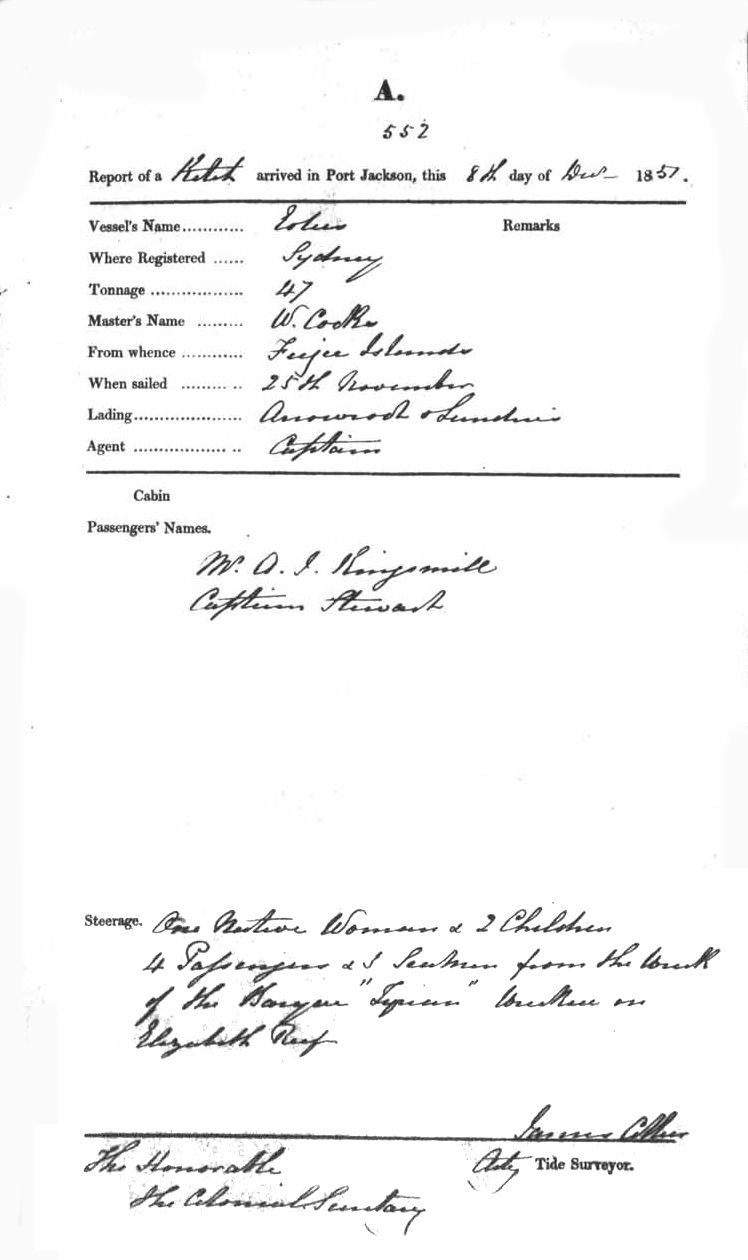 A.
552
Report of a Ketch arrived in Port Jackson, this 8th day of Decr 1851.
Vessel's Name............ Eolus Remarks
Where Registered ...... Sydney
Tonnage .................. 47
Master's Name ......... W. Cocks
From whence ............ Feejee Islands
When sailed ......... .. 25th November
Lading..................... Arrowroot & Sundries
Agent .................. .. Captain
Cabin
Passengers' Names.
Mr. A. J. Kingsmill
Captain Stewart
Steerage. One Native Woman & 2 Children
4 Passengers & Seamen from the Wreck
of the Barque "Tyrian" Wrecked on
Elizabeth Reef
James
Actg Tide Surveyor.
The Honorable
The Colonial Secretary